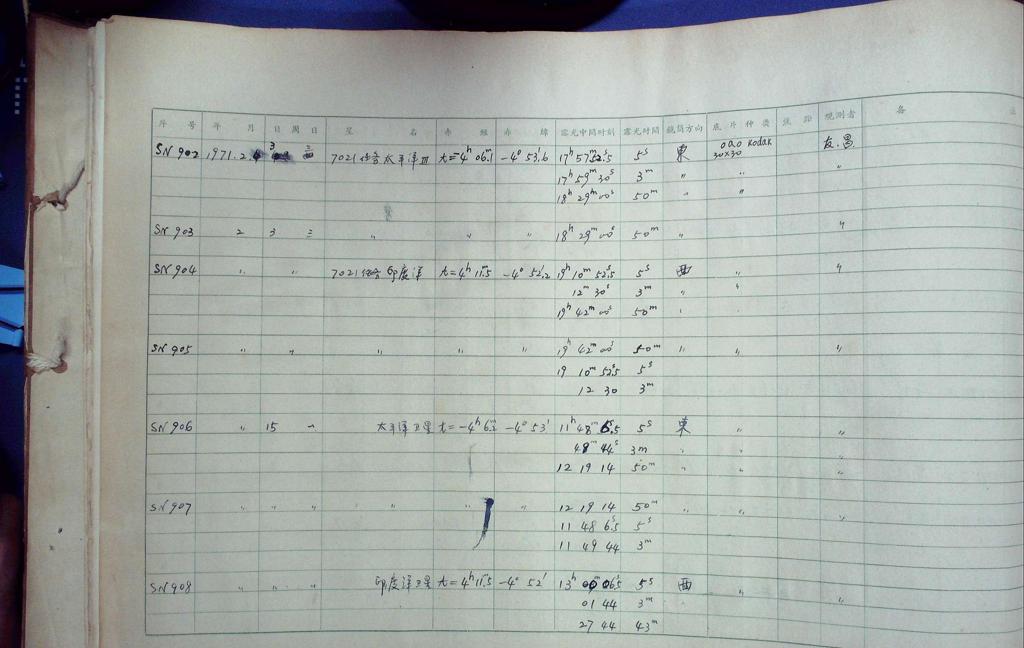 片 号 年 月 日 周 日 星 名 赤 经 赤 纬 露光中间时刻 露光时间 镜筒方向 底 片 种 类 观测者 备
SN 902 1971. 2. 3 三 7021 太平洋 III t=-4ʰ 06ᵐ.1 -4° 53'.6 17ʰ 57ᵐ 52ˢ.5 5ˢ 東 0a0 Kodak 友.昌
30×30
17ʰ 59ᵐ 30ˢ 3ᵐ " " "
18ʰ 29ᵐ 00ˢ 50ᵐ " "
SN 903 2 3 三 " " " 18ʰ 29ᵐ 00ˢ 50ᵐ " "
SN 904 " " 7021 印度洋 t=4ʰ 11ᵐ.5 -4° 52'.2 19ʰ 10ᵐ 52ˢ.5 5ˢ 西 " "
12ᵐ 30ˢ 3ᵐ " "
19ʰ 42ᵐ 00ˢ 50ᵐ "
SN 905 " " " " " 19ʰ 42ᵐ 00ˢ 50ᵐ " " "
19 10ᵐ 52ˢ.5 5ˢ
12 30 3ᵐ
SN 906 " 15 一 太平洋卫星 t=-4ʰ 6ᵐ.2 -4° 53' 11ʰ 48ᵐ 6ˢ.5 5ˢ 東 " "
44ˢ 3m " " "
12 19 14 50ᵐ " " "
SN 907 " " " " " " 12 19 14 50ᵐ " " "
11 48 6ˢ.5 5ˢ
11 49 44 3ᵐ
SN 908 " " " 印度洋卫星 t=4ʰ 11ᵐ.5 -4° 52' 13ʰ 00ᵐ 06ˢ.5 5ˢ 西 "
01 44 3ᵐ "
27 44 43ᵐ